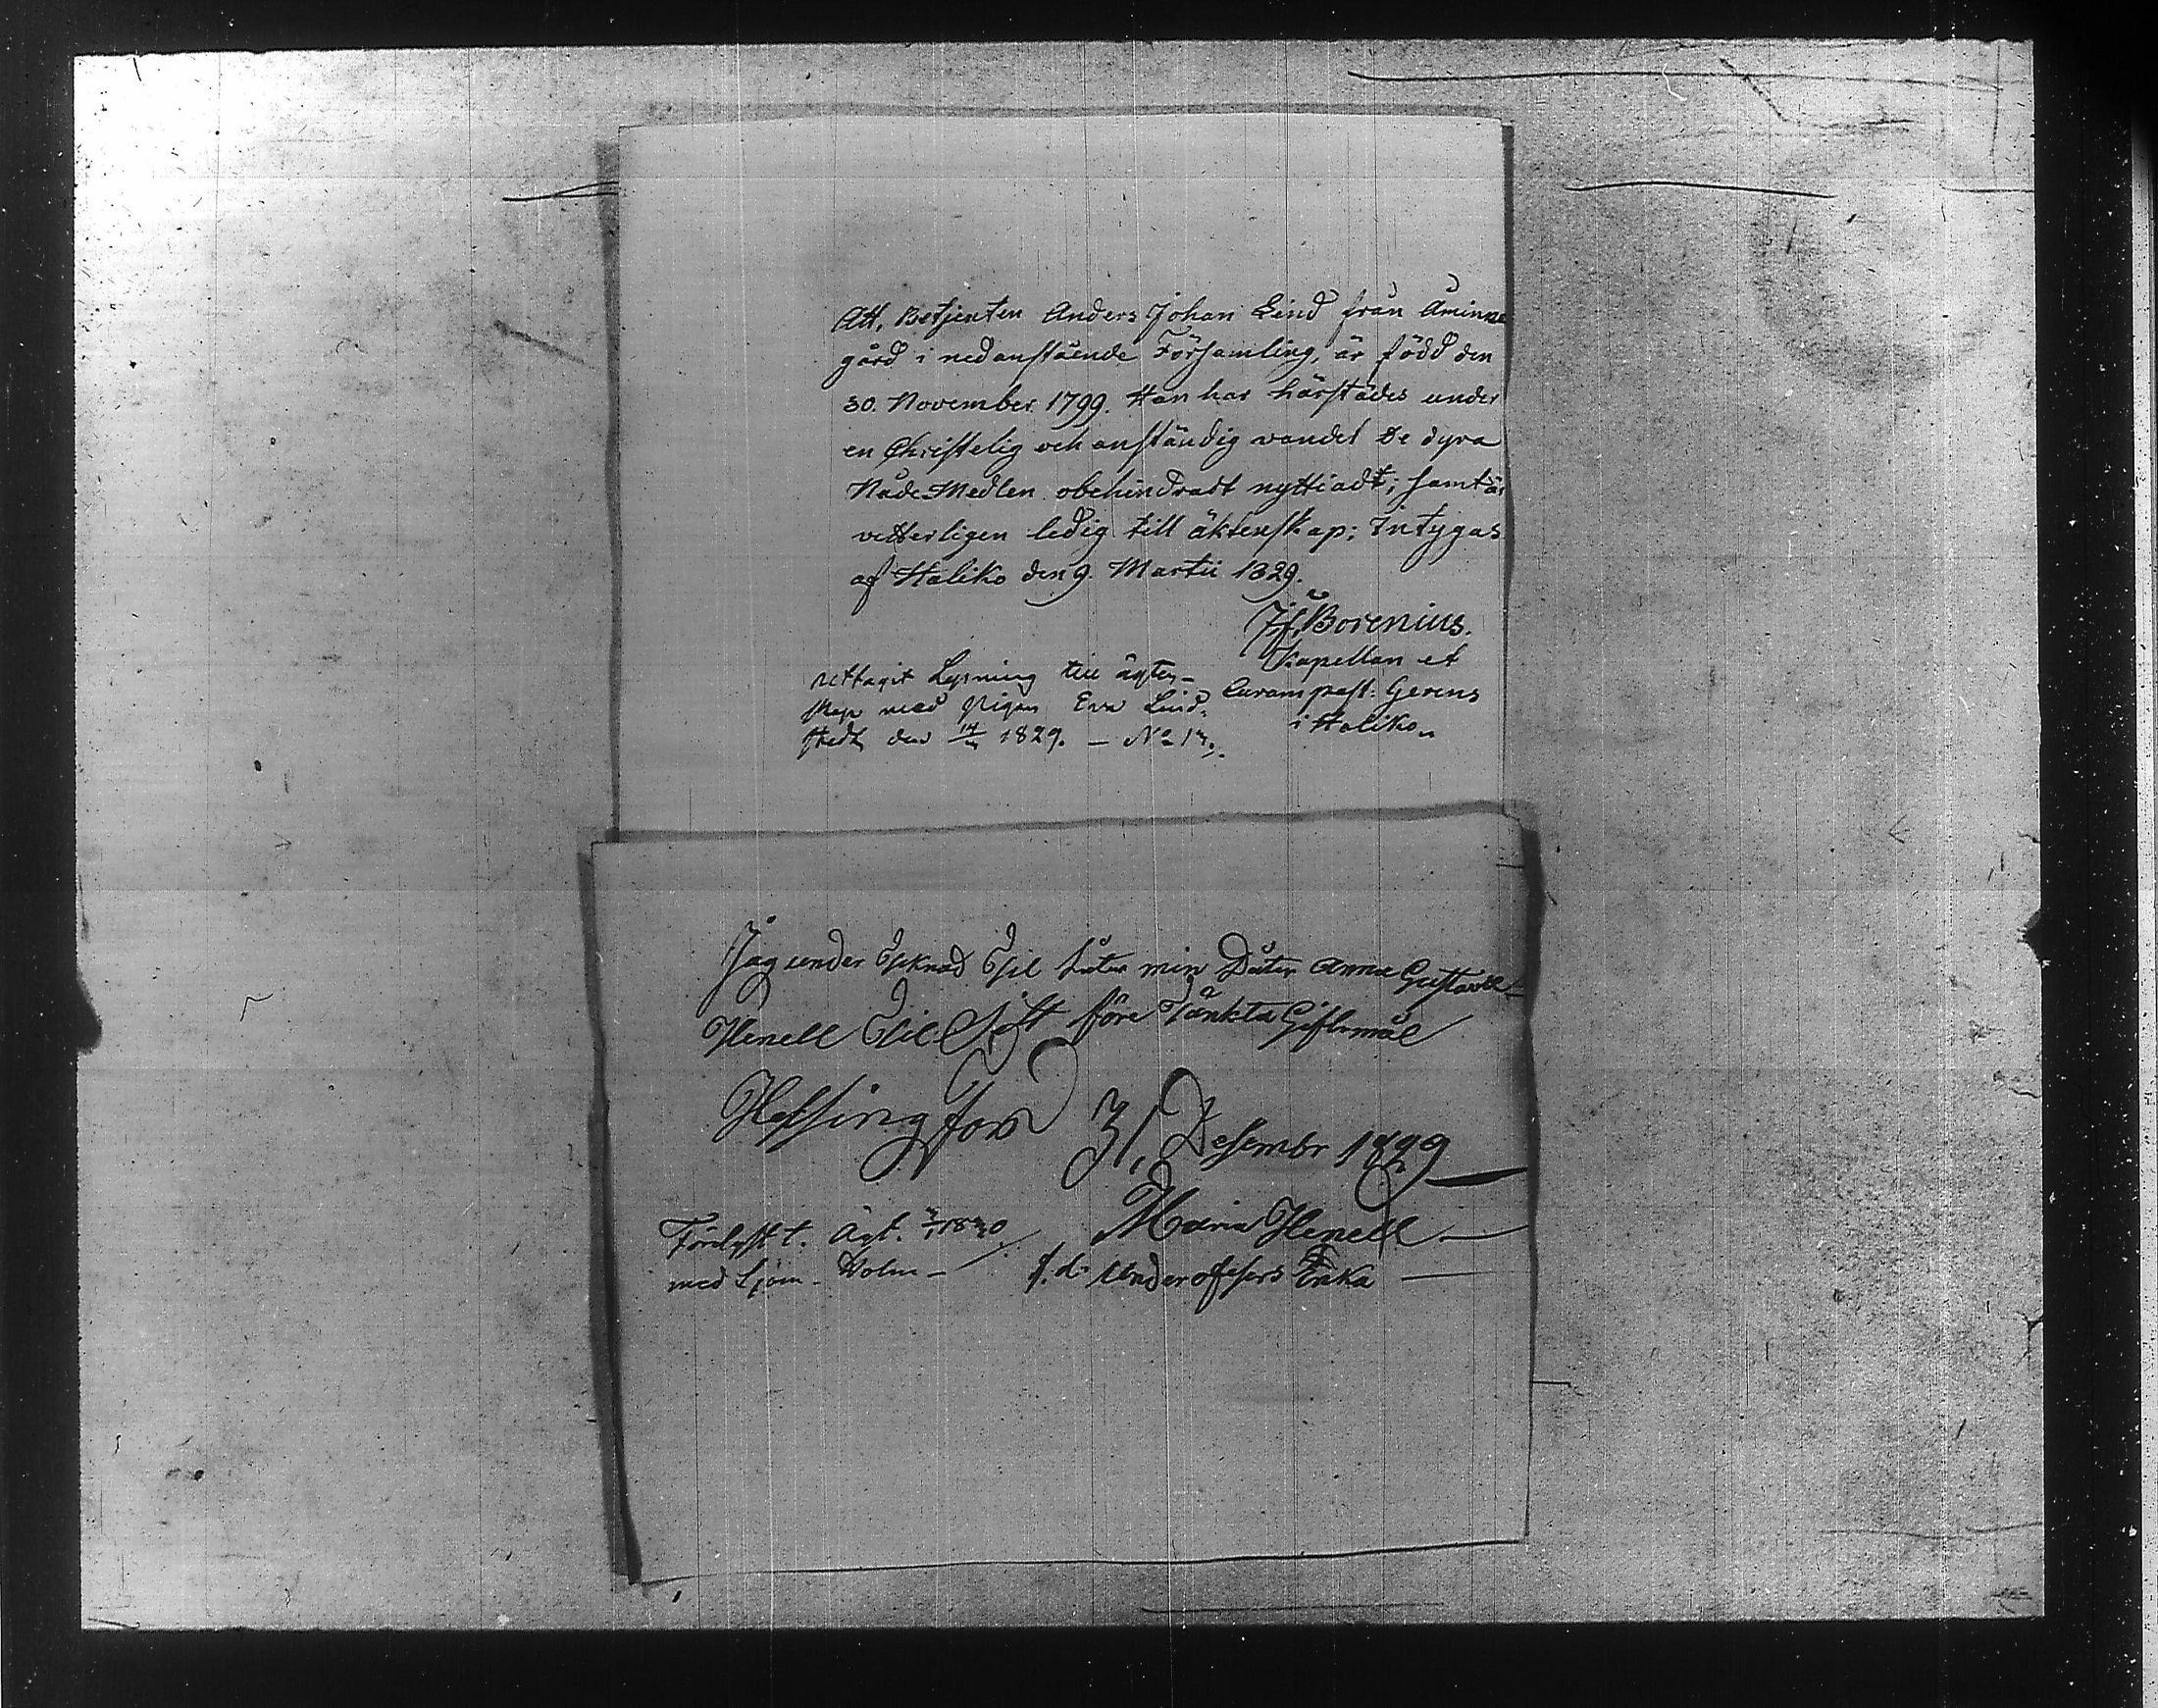 Att, Betjenten Anders Johan Lind från Åminne
gård i nedanstående Församling, är född den
30. November 1799. Han har härstädes under
en Christelig och anständig vandel De dyra
Nåde-Medlen obehindradt nyttjadt; samt är
vetterligen ledig till äktenskap; Intygas
af Haliko den 9. Martii 1829.
Borenius.
Kapellan et
Curam past: Gerens
i Haliko
uttagit Lysning till ägten-
skap med Pigan Eva Lind-
stedt den 1829. — No
Jag under Teknad Til Låter min Dåter Anna Gustava
Henell Til Sitt före Tänkta Giftermål
Helsingfors 31, Desembr 1829
Maria Henell
f.d. Underofisers Enka
Förelyst t. Ägt. 1830
med Sjöm. Holm